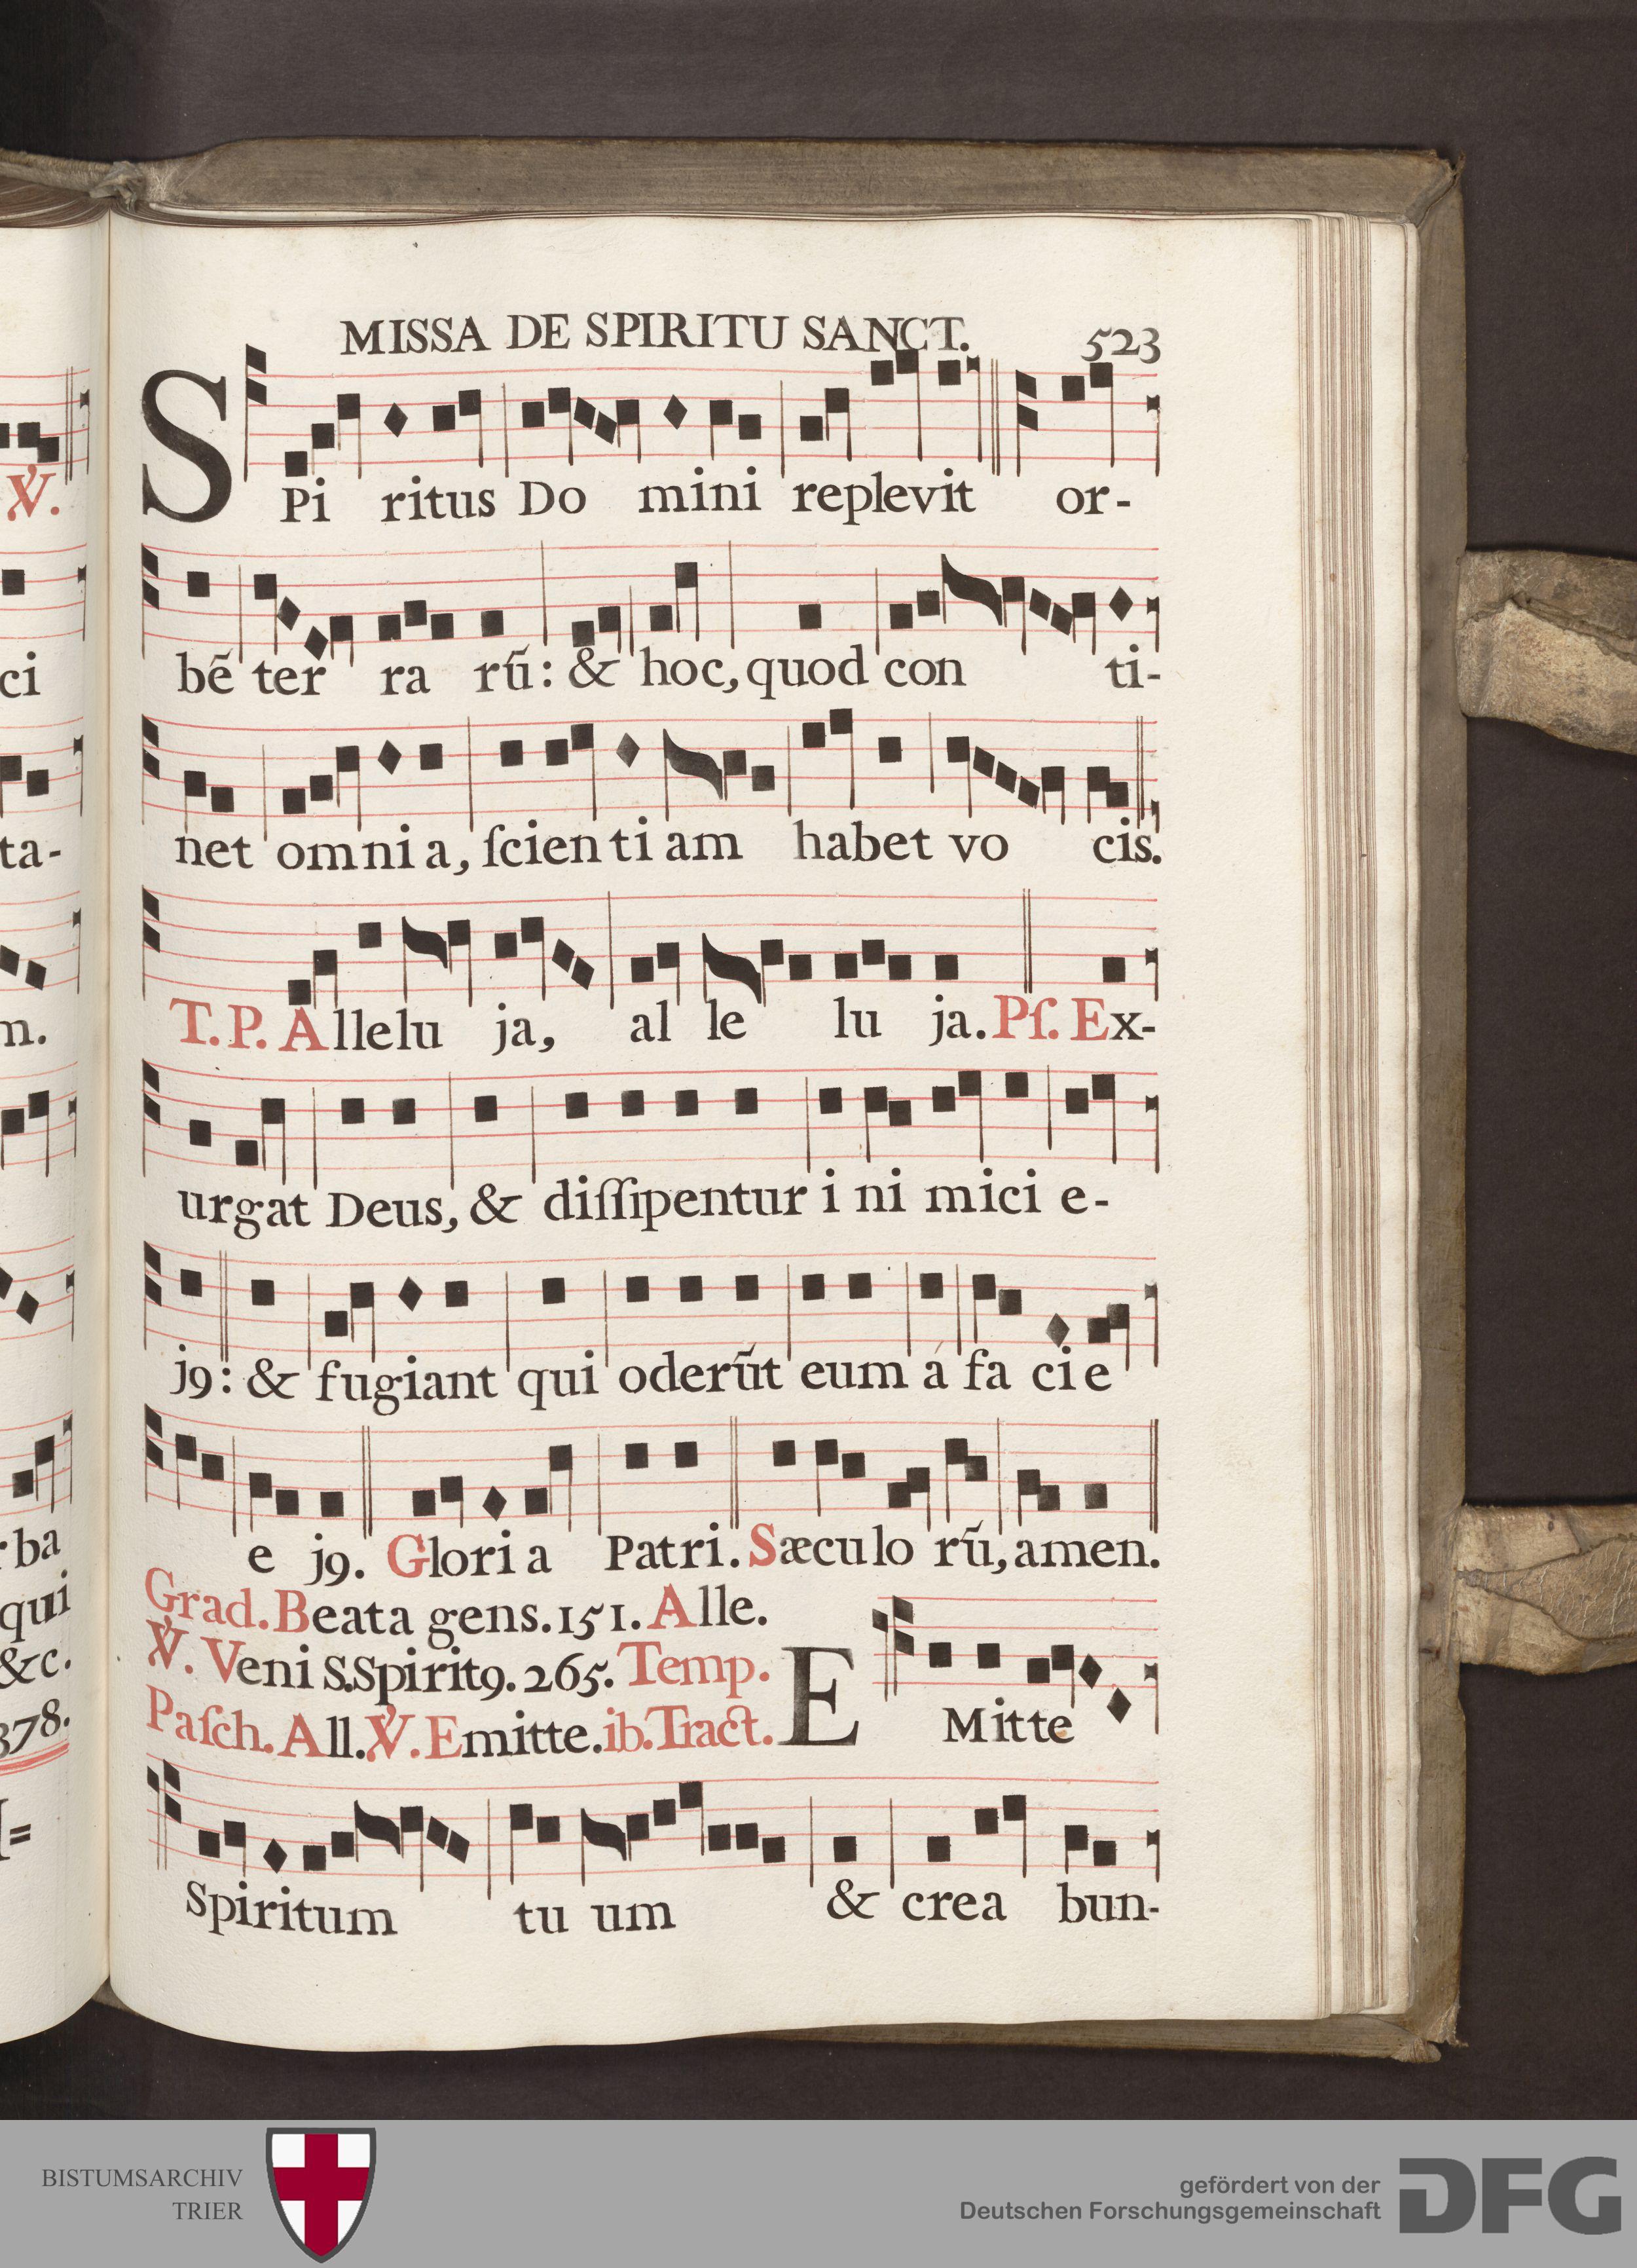 MISSA DE SPIRITU SANCT. 523
SPi ritus Do mini replevit or-
bē ter ra rū: & hoc, quod con ti-
net omni a, ſcien ti am habet vo cis.
T. P. Allelu ja, al le lu ja. Pſ. Ex-
urgat Deus, & diſſipentur i ni mici e-
j9: & fugiant qui oderūt eum á fa cie
e j9. Glori a Patri. Sæculo rū, amen.
Grad. Beata gens. 151. Alle.
℣. Veni S. Spirit9. 265. Temp.
Paſch. All. ℣. Emitte. ib. Tract. EMitte
Spiritum tu um & crea bun-
℣.
ci
ta-
m.
rba
qui
&c.
378.
BISTUMSARCHIV
TRIER
gefördert von der
Deutschen Forschungsgemeinschaft
DFG